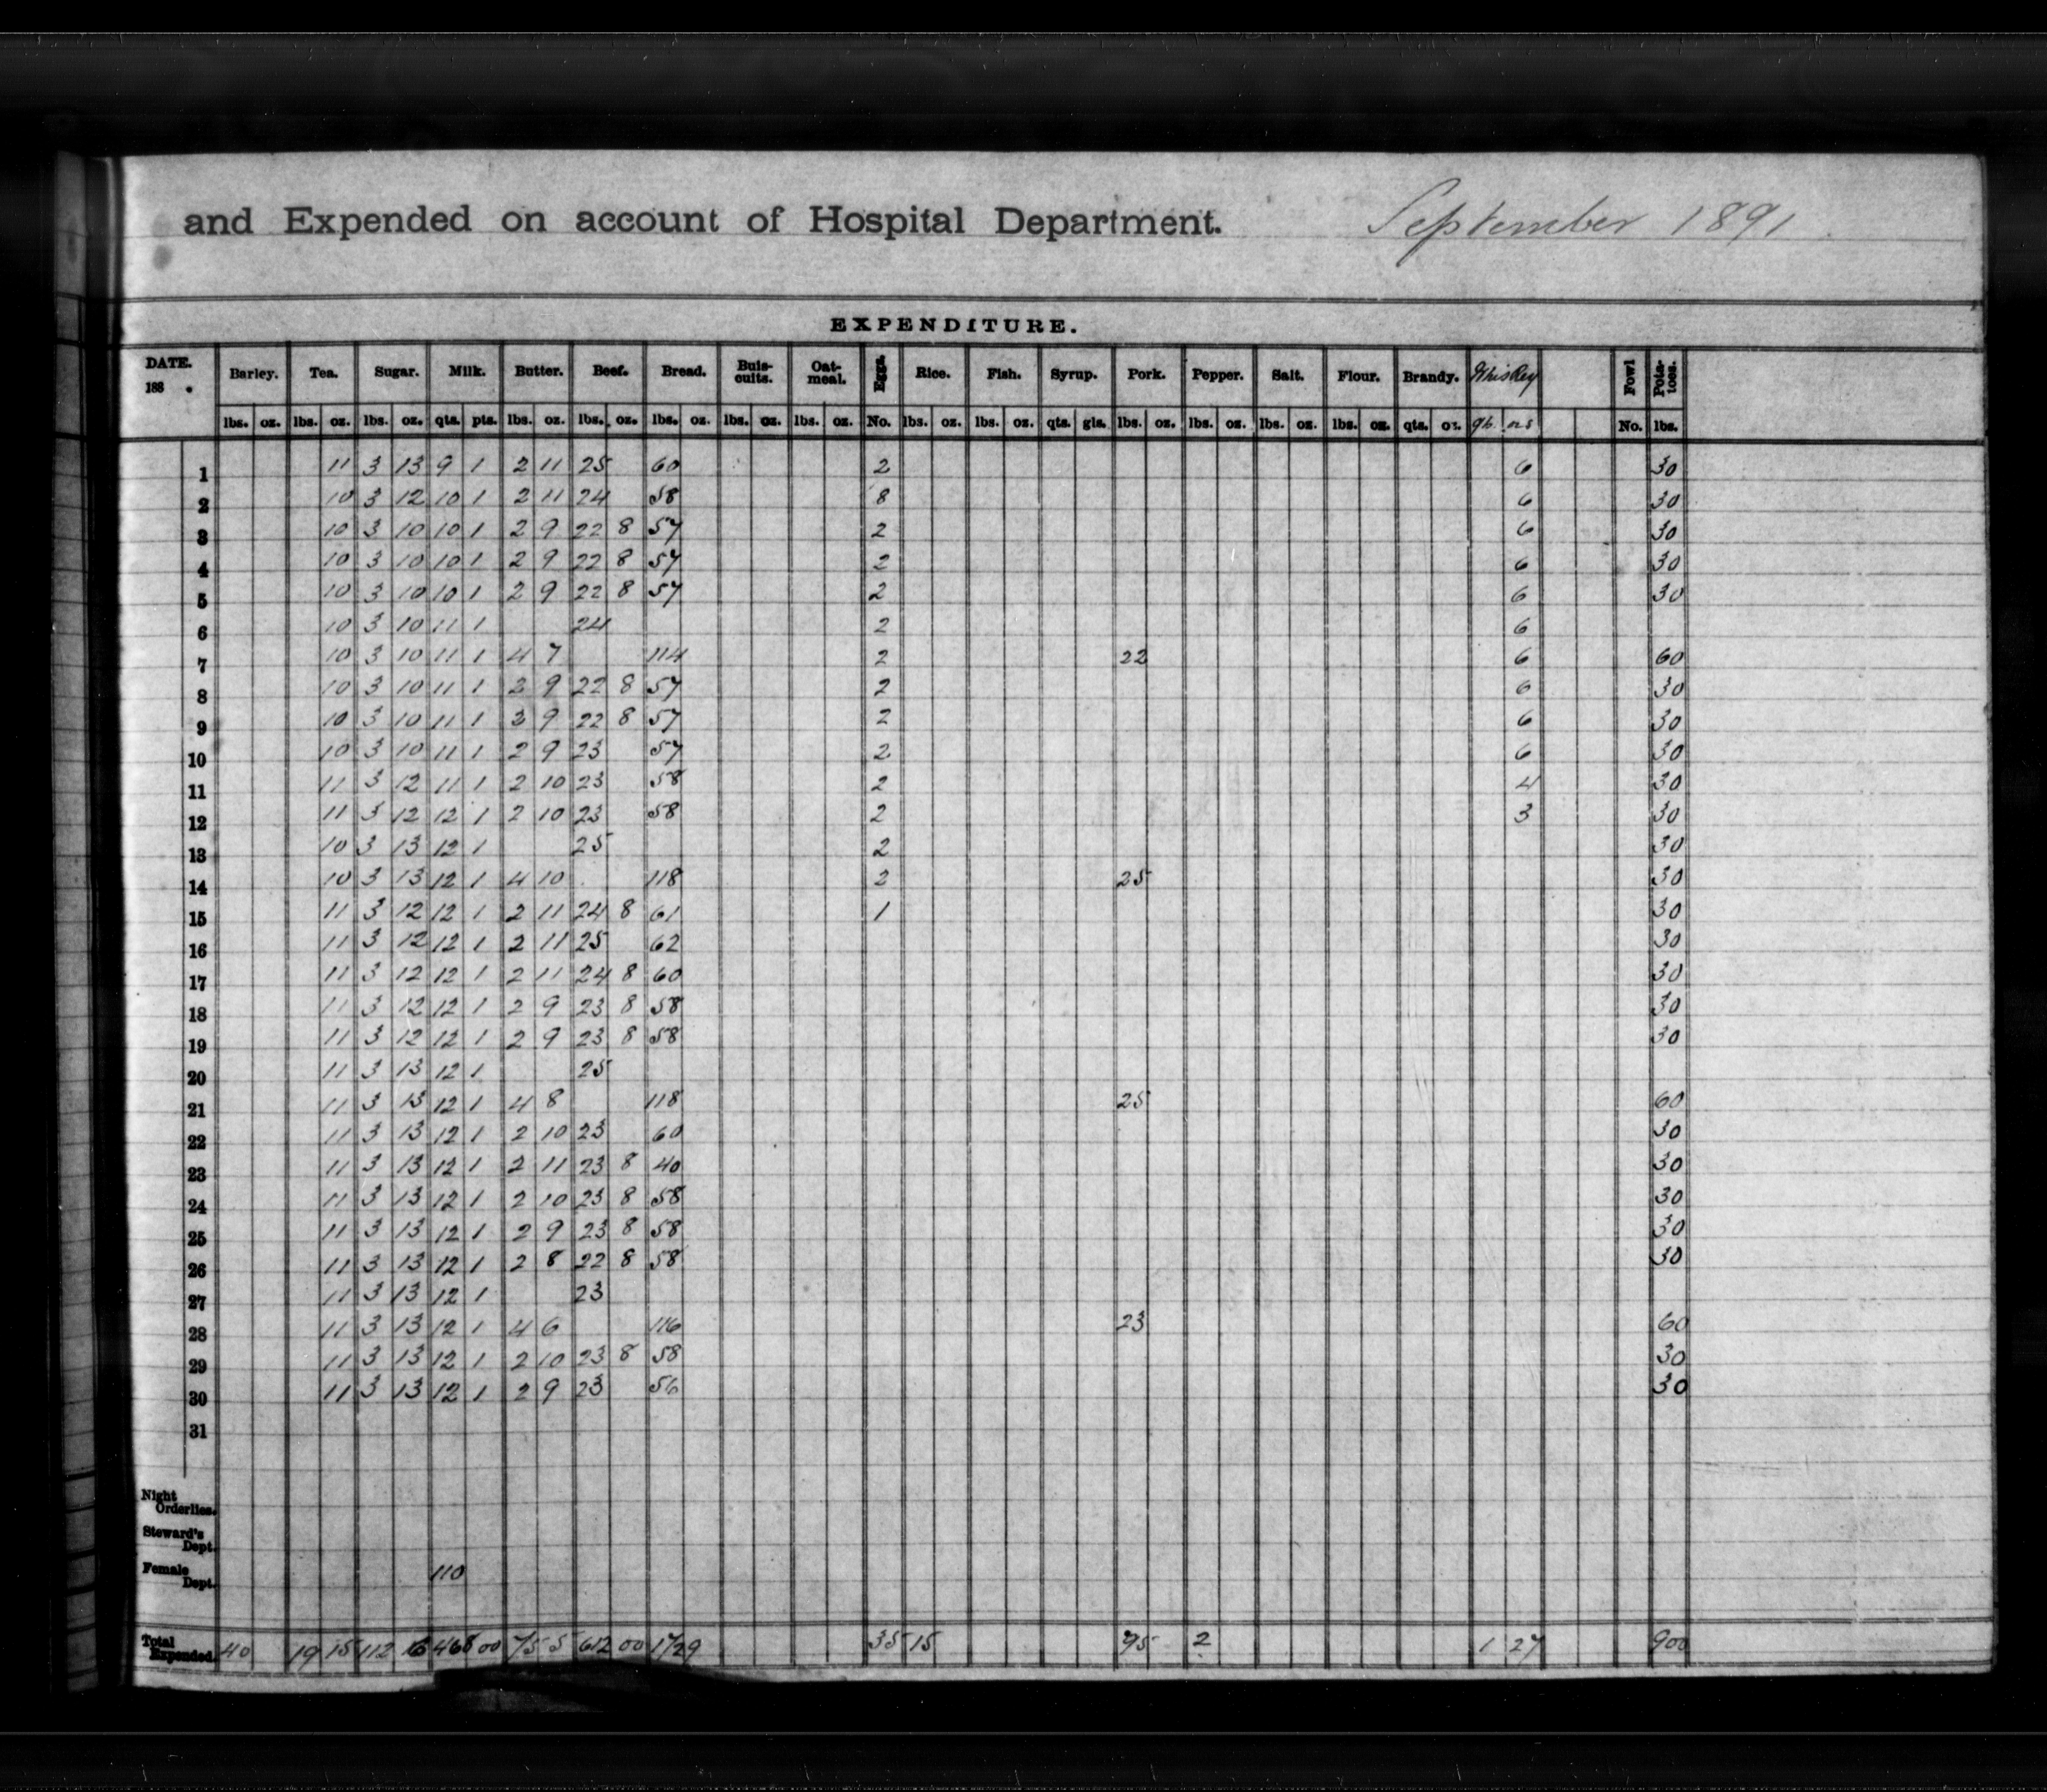 and Expended on account of Hospital Department. September 1891
EXPENDITURE.
DATE. 188 . Barley. Tea. Sugar. Milk. Butter. Beef. Bread. Buis-cuits. Oat-meal. Eggs. Rice. Fish. Syrup. Pork. Pepper. Salt. Flour. Brandy. Whiskey Fowl Pota-toes.
lbs. oz. lbs. oz. lbs. oz. qts. pts. lbs. oz. lbs. oz. lbs. oz. lbs. oz. lbs. oz. No. lbs. oz. lbs. oz. qts. gls. lbs. oz. lbs. oz. lbs. oz. lbs. oz. qts. oz. No. lbs.
1 11 3 13 9 1 2 11 25 60 2 6 30
2 10 3 12 10 1 2 11 24 58 8 6 30
3 10 3 10 10 1 2 9 22 8 57 2 6 30
4 10 3 10 10 1 2 9 22 8 57 2 6 30
5 10 3 10 10 1 2 9 22 8 57 2 6 30
6 10 3 10 11 1 24 2 6
7 10 3 10 11 1 4 7 114 2 22 6 60
8 10 3 10 11 1 2 9 22 8 57 2 6 30
9 10 3 10 11 1 2 9 22 8 57 2 6 30
10 10 3 10 11 1 2 9 23 57 2 6 30
11 11 3 12 11 1 2 10 23 58 2 4 30
12 11 3 12 12 1 2 10 23 58 2 3 30
13 10 3 13 12 1 25 2 30
14 10 3 13 12 1 4 10 118 2 25 30
15 11 3 12 12 1 2 11 24 8 61 1 30
16 11 3 12 12 1 2 11 25 62 30
17 11 3 12 12 1 2 11 24 8 60 30
18 11 3 12 12 1 2 9 23 8 58 30
19 11 3 12 12 1 2 9 23 8 58 30
20 11 3 13 12 1 25
21 11 3 13 12 1 4 8 118 25 60
22 11 3 13 12 1 2 10 23 60 30
23 11 3 13 12 1 2 11 23 8 40 30
24 11 3 13 12 1 2 10 23 8 58 30
25 11 3 13 12 1 2 9 23 8 58 30
26 11 3 13 12 1 2 8 22 8 58 30
27 11 3 13 12 1 23
28 11 3 13 12 1 4 6 116 23 60
29 11 3 13 12 1 2 10 23 8 58 30
30 11 3 13 12 1 2 9 23 56 30
31
Night Orderlies.
Steward's Dept.
Female Dept. 110
Total Expended. 40 19 15 112 16 468 00 75 5 612 00 1729 35 15 95 2 1 27 900